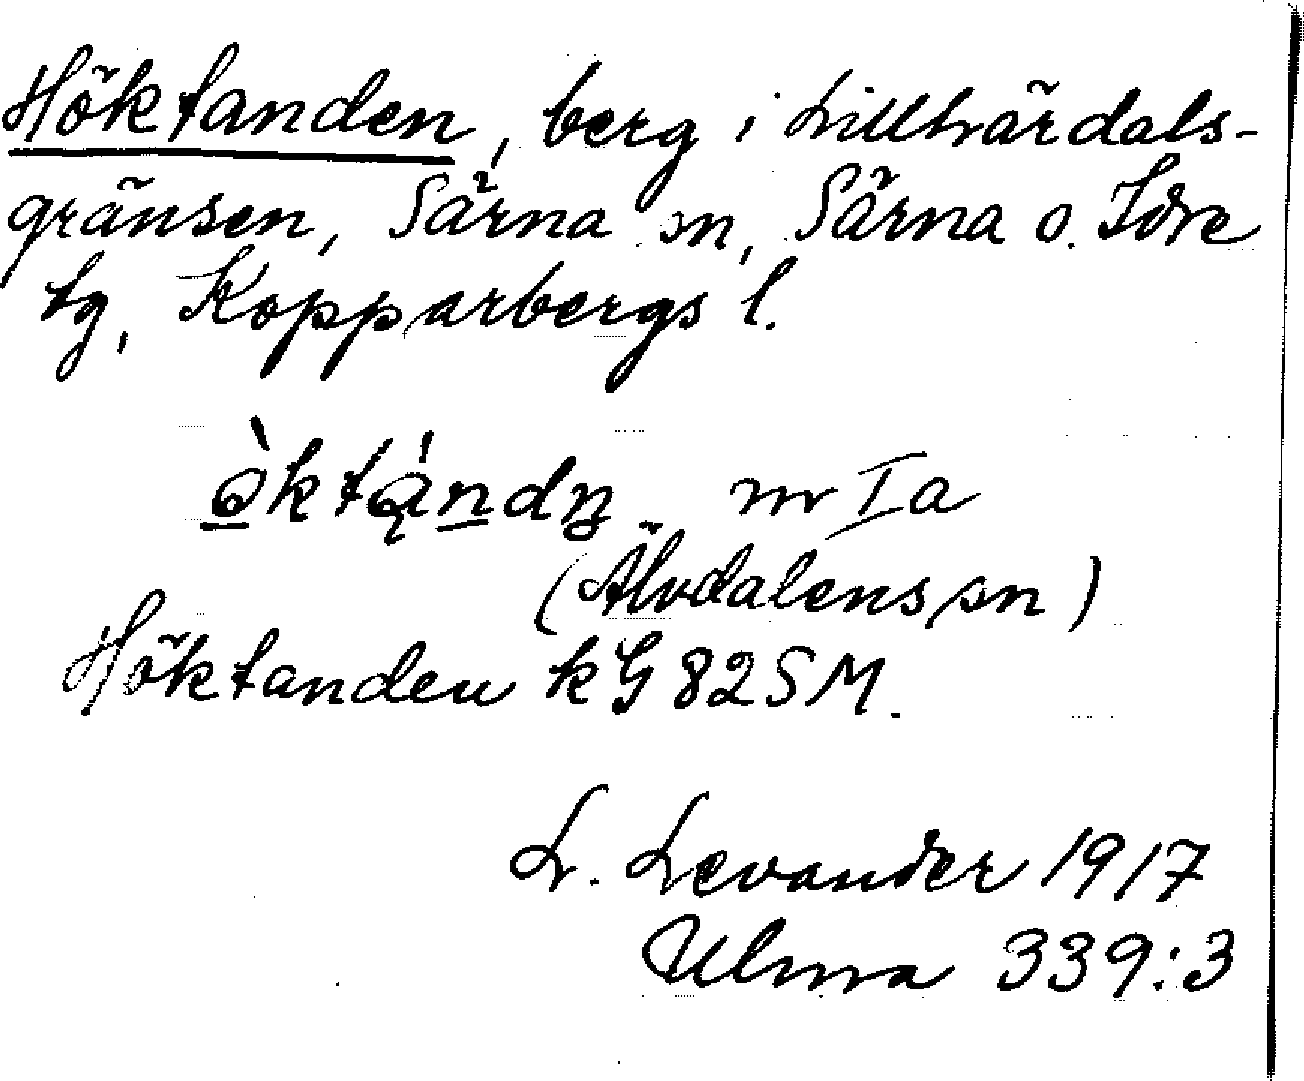 Höktanden, berg i Lillhärdals-
gränsen, Särna sn, Särna o. Idre
tg, Kopparbergs l.
m Ia
(Älvdalens sn)
Höktanden kG 82 SM.
L. Levander 1917
Ulma 339:3